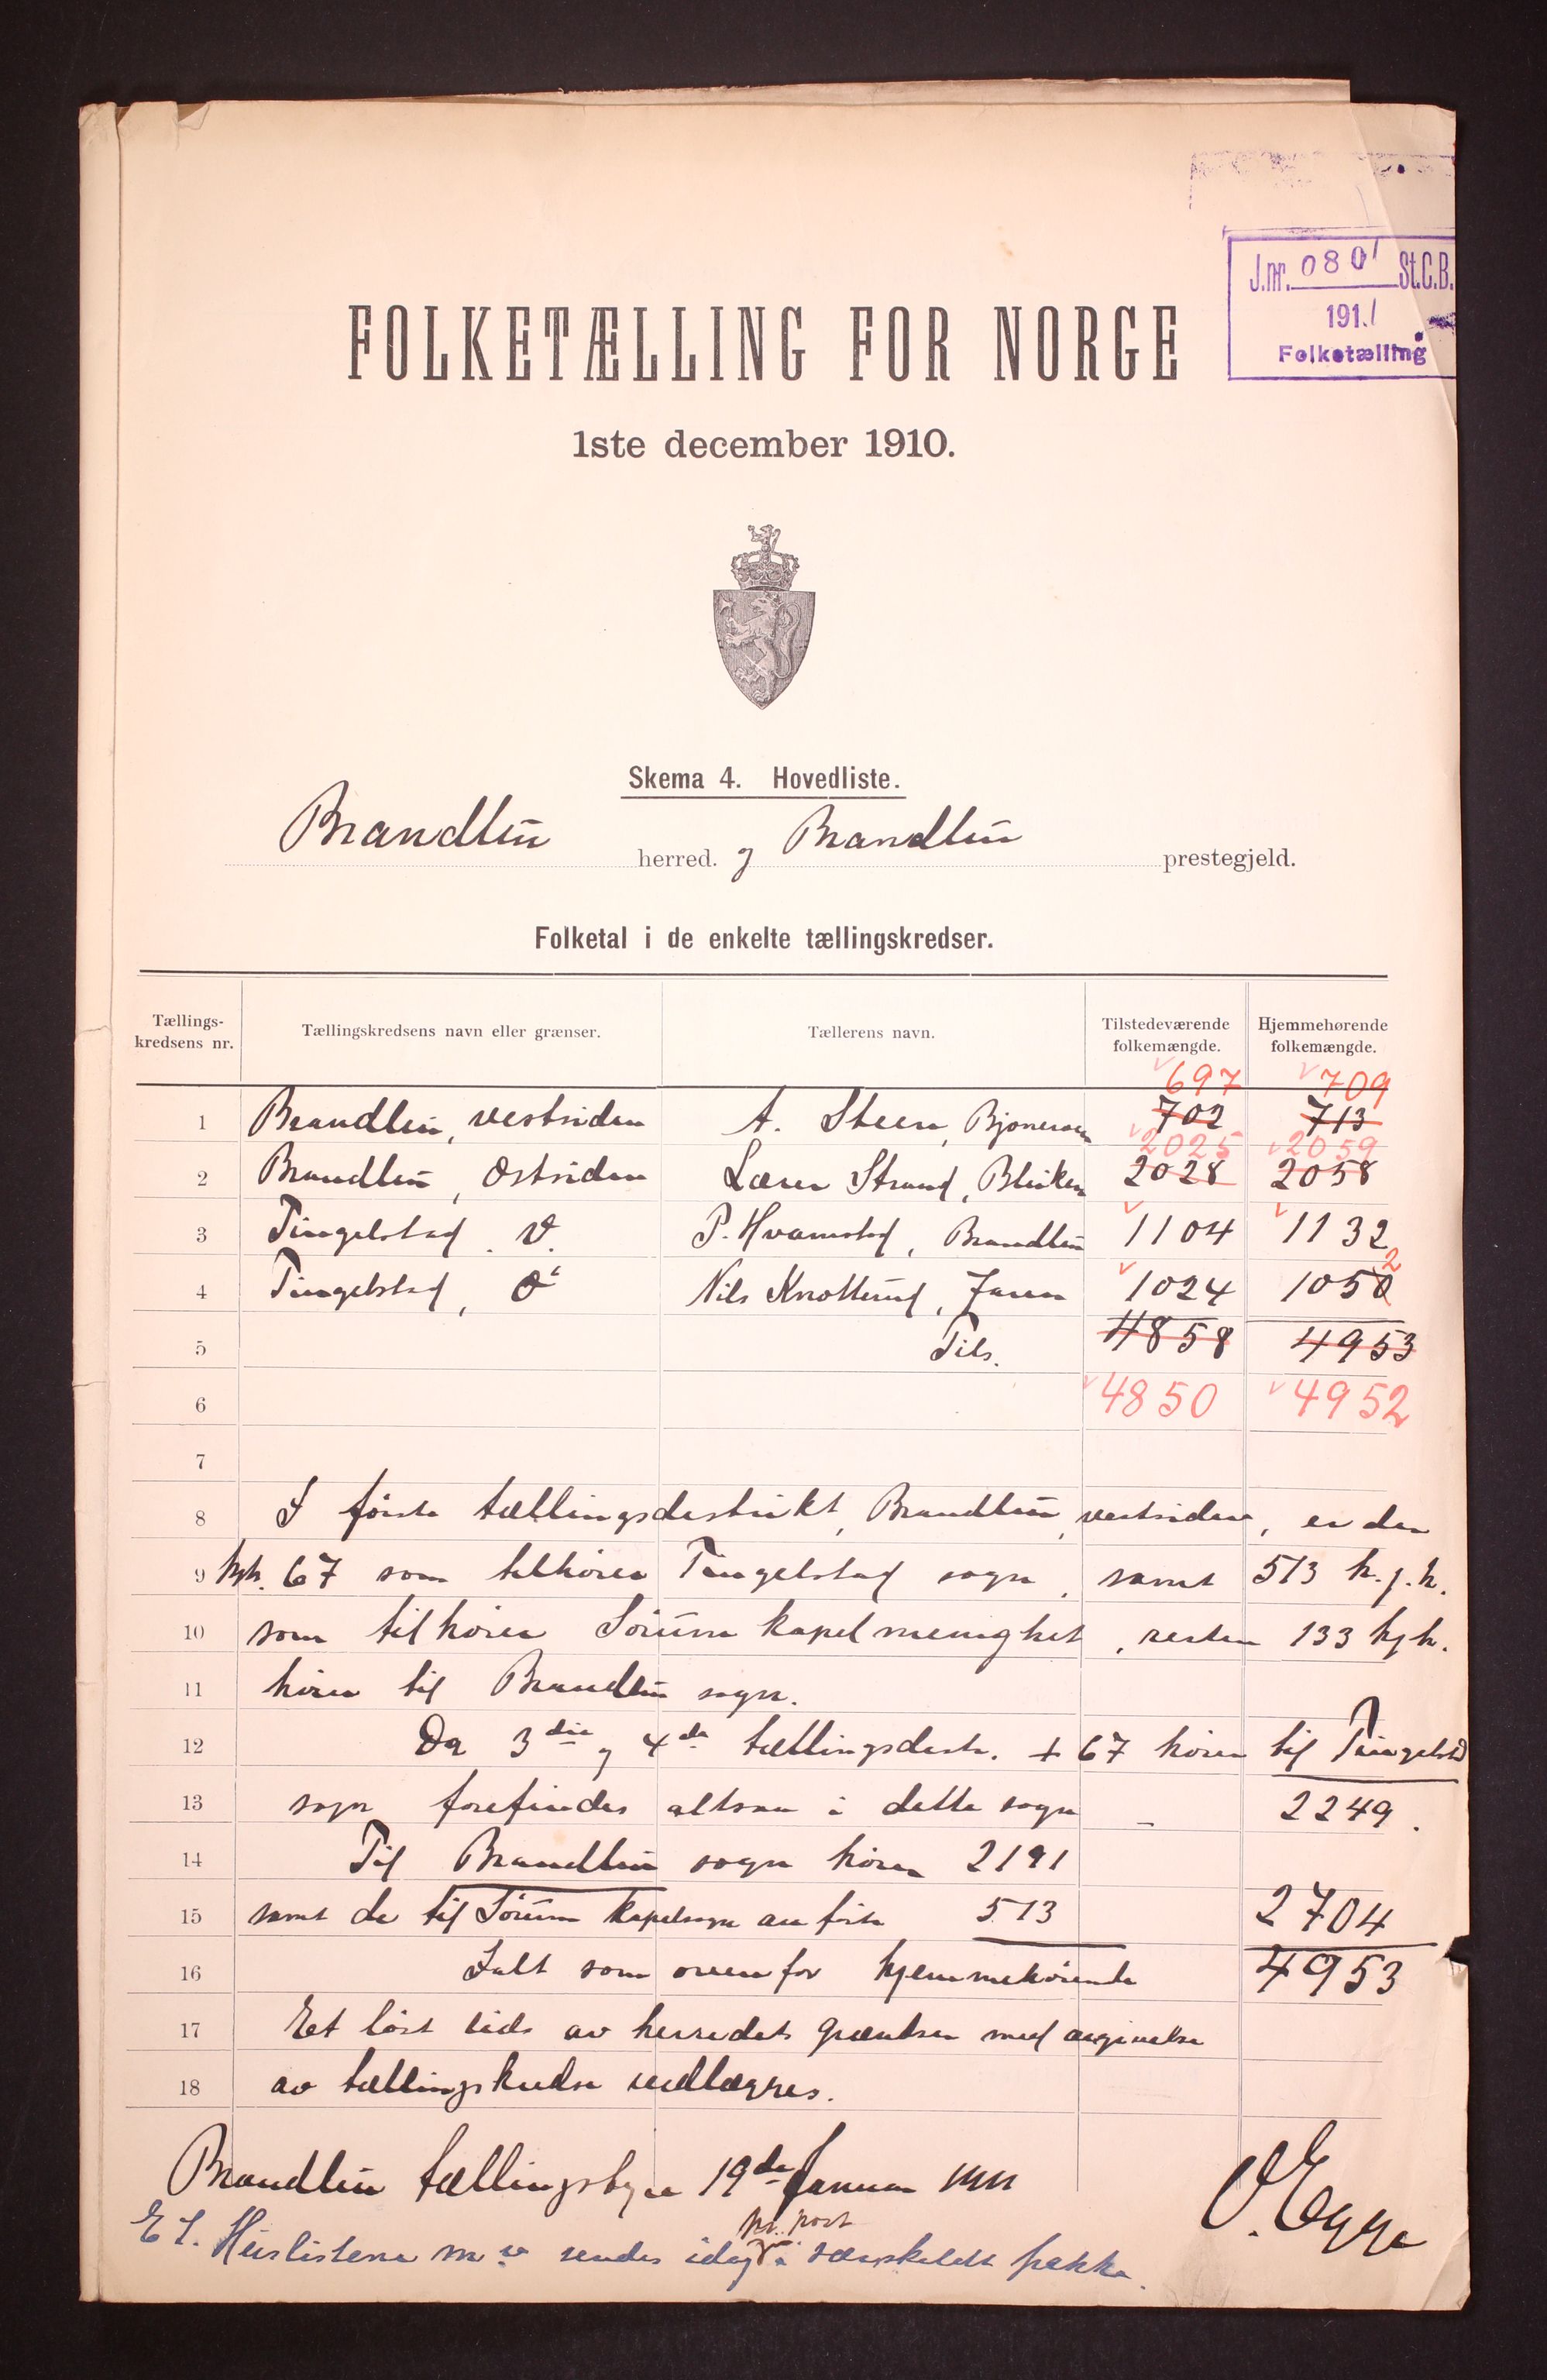 J.nr. 0801 St.C.B.
1911
Folketælling
FOLKETÆLLING FOR NORGE
1ste december 1910.
Skema 4. Hovedliste.
Brandbu herred. og Brandbu prestegjeld.
Folketal i de enkelte tællingskredser.
Tællings-kredsens nr. Tællingskredsens navn eller grænser. Tællerens navn. Tilstedeværende folkemængde. Hjemmehørende folkemængde.
697 709
1 Brandbu, vestsiden A. Steen, Bjoneroen 702 713
2025 2059
2 Brandbu, Østsiden Lærer Strand, Bleiken 2028 2058
3 Tingelstad V. P. Hvamstad, Brandbu 1104 1132
4 Tingelstad, Ø Nils Knotterud, Jaren 1024 1050 2
5 Tils. 4858 4953
6 4850 4952
7
8 I første tællingsdistrikt, Brandbu, vestsiden, er der
9 hjh. 67 som tilhører Tingelstad sogn, samt 513 h.j.h.
10 som tilhører Sørum kapelmenighet, resten 133 hjh.
11 hører til Brandbu sogn.
12 Da 3die og 4de tællingsdistr. + 67 hører til Tingelstad
13 sogn forefindes altsaa i dette sogn – 2249.
14 Til Brandbu sogn hører 2191
15 samt de til Sørum kapelsogn anførte 513 2704
16 Ialt som ovenfor hjemmehørende 4953
17 Et løst rids av herredets grænser med angivelse
18 av tællingskredse vedlægges.
Brandbu tællingsstyre 19de Januar 1911
O. Egge
E S. Huslistene m v sendes idag pr. post i særskildt pakke.